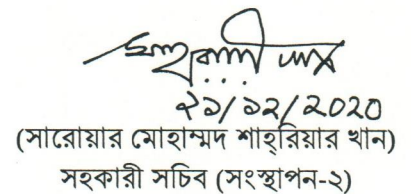 ২১/১২/2020
(সারোয়ার মোহাম্মদ শাহ্‌রিয়ার খান)
সহকারী সচিব (সংস্থাপন-২)